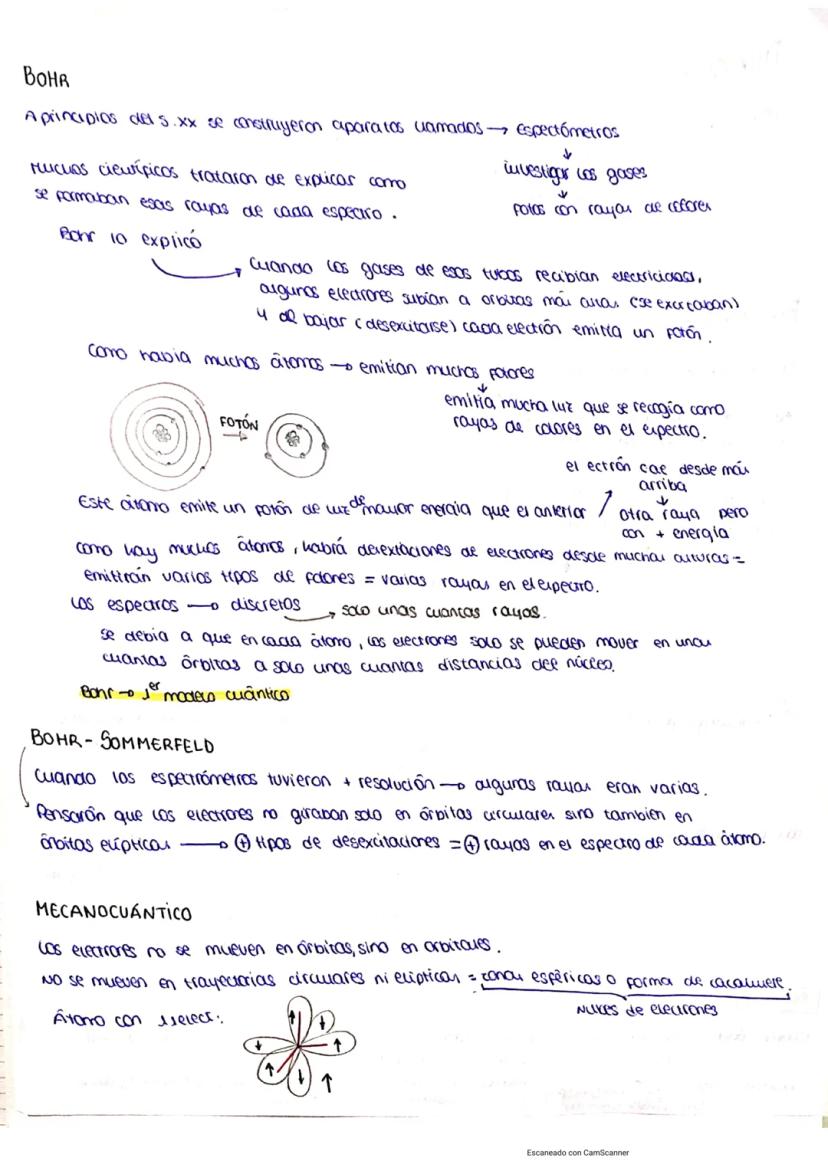 BOHR
A principios del s. XX se construyeron aparatos llamados → Espectómetros
↓
investigar los gases
↓
fotos con rayas de colores
Muchos científicos trataron de explicar como
se formaban esas rayas de cada espectro.
Bohr lo explicó
Cuando los gases de esos tubos recibian electricidad,
algunos electrones subían a órbitas más altas (se excitaban)
y al bajar (desexcitarse) cada electrón emitía un fotón.
Como había muchos átomos → emitian muchos fotones
↓
emitía mucha luz que se recogía como
rayas de colores en el espectro.
FOTÓN
→
el ectrón cae desde más
arriba
↓
otra raya pero
con + energía
Este átomo emite un fotón de luz de mayor energia que el anterior
Como hay muchos átomos, habrá desexitaciones de electrones desde muchas alturas =
emitirán varios tipos de fotones = varias rayas en el espectro.
Los espectros → discretos → solo unas cuantas rayas.
se debía a que en cada átomo, los electrones solo se pueden mover en unas
cuantas órbitas a solo unas cuantas distancias del núcleo.
Bohr → 1er modelo cuántico
BOHR - SOMMERFELD
Cuando los espectrómetros tuvieron + resolución → algunas rayas eran varias.
Pensarón que los electrones no giraban solo en órbitas circulares sino tambien en
órbitas elípticas → + tipos de desexcitaciones = + rayas en el espectro de cada átomo.
MECANOCUÁNTICO
Los electrones no se mueven en órbitas, sino en orbitales.
No se mueven en trayectorias circulares ni elípticas = zonas esféricas o forma de cacahuete.
Nubes de electrones
Átomo con 11 elect:
↑ ↓ ↑ ↓ ↑ ↓ ↑
Escaneado con CamScanner